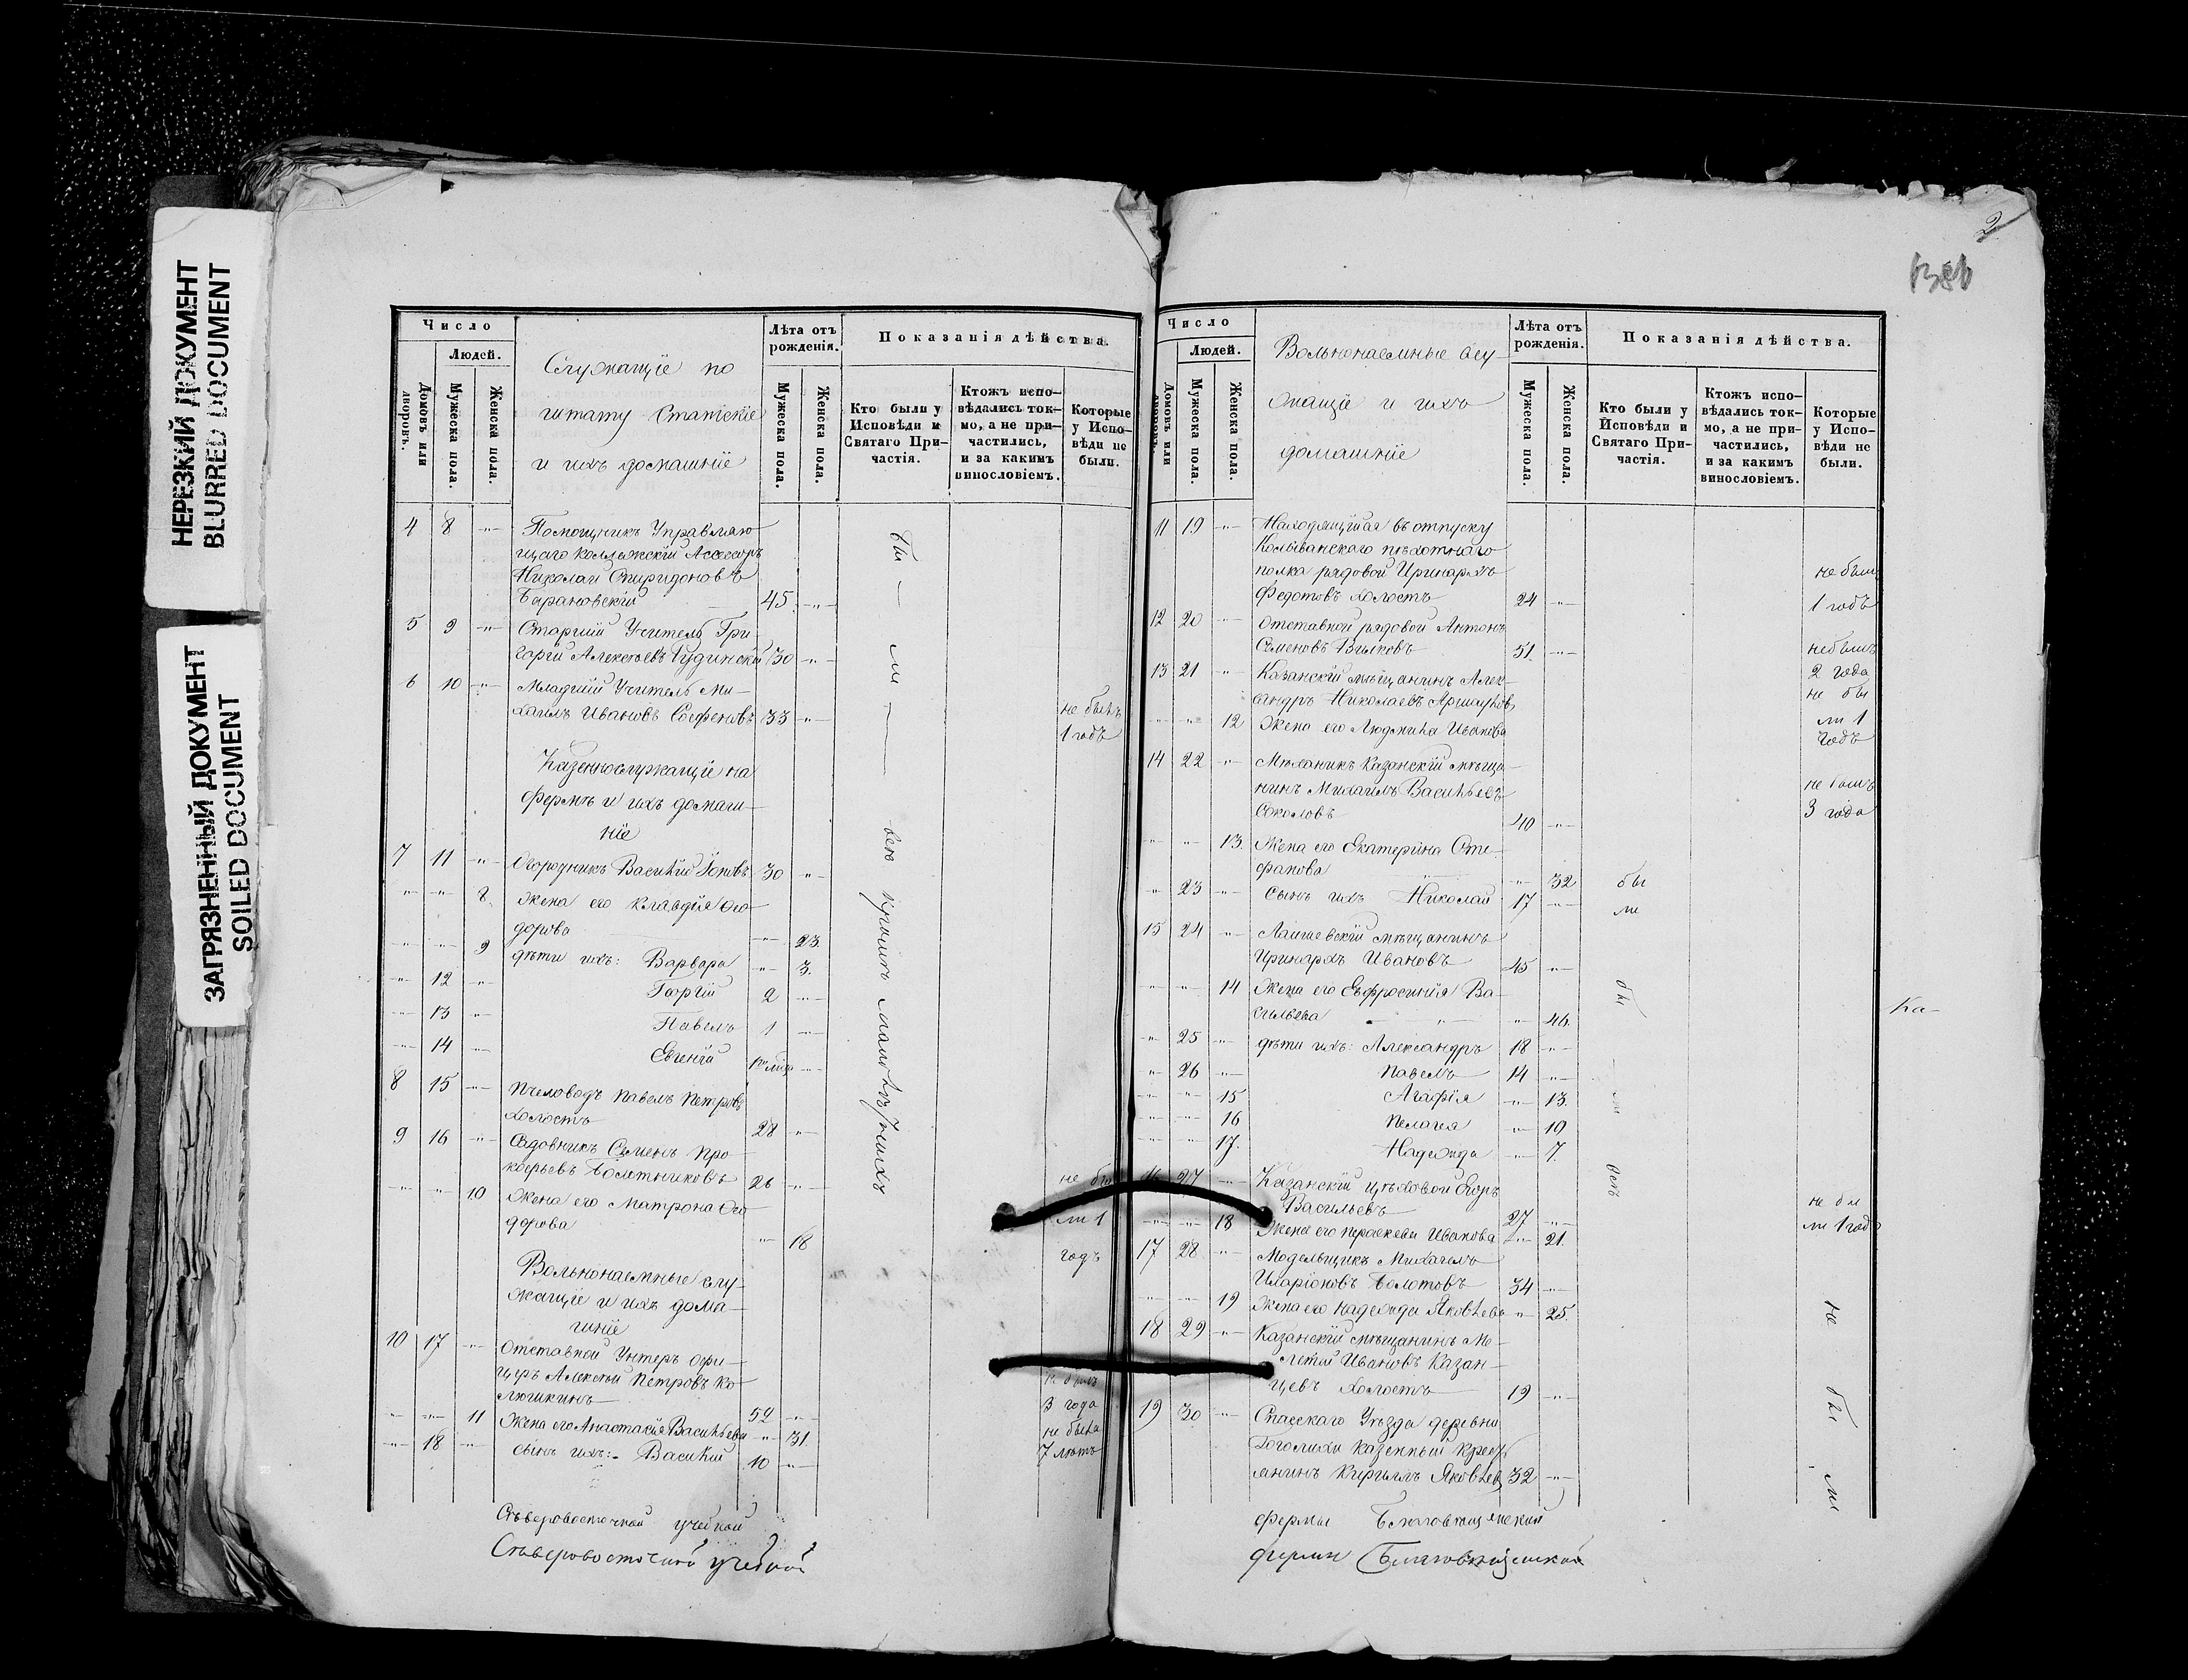 НЕРЕЗКИЙ ДОКУМЕНТ
BLURRED DOCUMENT
ЗАГРЯЗНЕННЫЙ ДОКУМЕНТ
SOILED DOCUMENT
Число
Людей.
Домовъ или дворовъ.
Мужеска пола.
Женска пола.
Служащіе по
штату Статскіе
и ихъ домашніе
Лѣта отъ рожденія.
Мужеска пола.
Женска пола.
Показанія дѣйства.
Кто были у Исповѣди и Святаго Причастія.
Ктожъ исповѣдались токмо, а не причастились, и за какимъ винословіемъ.
Которые у Исповѣди не были.
4 8 -"- Помощникъ Управляю
щаго коллежскій Ассесоръ
Николай Спиридоновъ
Барановскій 45. -"-
5 9 -"- Старшій Учитель Гри
горій Алексѣевъ 30 -"-
6 10 -"- Младшій Учитель Ми-
хаилъ Ивановъ 33 -"- не былъ
1 годъ
Казеннослужащіе на
фермѣ и ихъ домаш-
ніе
7 11 -"- Огородникъ Василій 30 -"-
-"- -"- 8. Жена его Клавдія Ѳео-
дорова -"- 23.
-"- -"- 9 дѣти ихъ: Варвара -"- 3.
-"- 12 -"- Георгій 2 -"-
-"- 13 -"- Павелъ 1 -"-
-"- 14 -"- Евгеній -"-
8 15 -"- Пчеловодъ Павелъ Петровъ
холостъ 28 -"-
9 16 -"- Садовникъ Семенъ Про-
кофьевъ Болотниковъ 26 -"- не бы
-"- -"- 10 Жена его Матрона Ѳео-
дорова -"- 18 ли 1
годъ
Вольнонаемные слу-
жащіе и ихъ дома-
шніе
10 17 -"- Отставной Унтеръ офи-
церъ Алексѣй Петровъ Ко-
люшкинъ 52 -"- не былъ
3 года
-"- -"- 11 Жена его Анастасія Васильева -"- 31. не была
7 лѣтъ
-"- 18 -"- сынъ ихъ: Василій 10 -"-
бы — ли — всѣ кромѣ малолѣтнихъ
Сѣверовосточной учебной
Сѣверовосточной учебной
2
Число
Людей.
Домовъ или дворовъ.
Мужеска пола.
Женска пола.
Вольнонаемные слу-
жащіе и ихъ
домашніе
Лѣта отъ рожденія.
Мужеска пола.
Женска пола.
Показанія дѣйства.
Кто были у Исповѣди и Святаго Причастія.
Ктожъ исповѣдались токмо, а не причастились, и за какимъ винословіемъ.
Которые у Исповѣди не были.
11 19 -"- Находящійся въ отпуску
Колыванскаго пѣхотнаго
полка рядовой Иринархъ не былъ
Федотовъ холостъ 24 -"- 1 годъ
12 20 -"- Отставной рядовой Антонъ
Семеновъ Вилковъ 51. -"- не былъ
2 года
13 21 -"- Казанскій мѣщанинъ Алек-
сандръ Николаевъ не бы
-"- -"- 12 Жена его Людмила Иванова ли 1
годъ
14 22 -"- Механикъ Казанскій мѣща-
нинъ Михаилъ Васильевъ не былъ
Соколовъ 40 -"- 3 года
-"- -"- 13. Жена его Екатерина Сте-
фанова -"- 32 бы
-"- 23 -"- сынъ ихъ Николай 17 -"- ли
15 24 -"- Лаишевскій мѣщанинъ
Иринархъ Ивановъ 45 -"-
-"- -"- 14 Жена его Евфросинія Ва-
сильева -"- 46. бы
Ка-
-"- 25 -"- дѣти ихъ: Александръ 18 -"-
-"- 26 -"- Павелъ 14 -"-
-"- -"- 15 Агафія -"- 13. ли
-"- -"- 16 Пелагія -"- 10
-"- -"- 17. Надежда -"- 7.
всѣ
16 27 -"- Казанскій цѣховой Егоръ
Васильевъ 27 -"- не бы
-"- -"- 18 Жена его Праскева Иванова -"- 21. ли 1 годъ
17 28 -"- Модельщикъ Михаилъ
Иларіоновъ Болотовъ 34 -"-
-"- -"- 19 Жена его Надежда Яковлева -"- 25. не
18 29 -"- Казанскій мѣщанинъ Ме-
летій Ивановъ Казан-
цевъ холостъ 19 -"- бы
19 30 -"- Спасскаго Уѣзда деревни
Гоголихи казенный крест
янинъ Кириллъ Яковлевъ 32 -"- ли
фермы Благовѣщенской
фермы Благовѣщенской